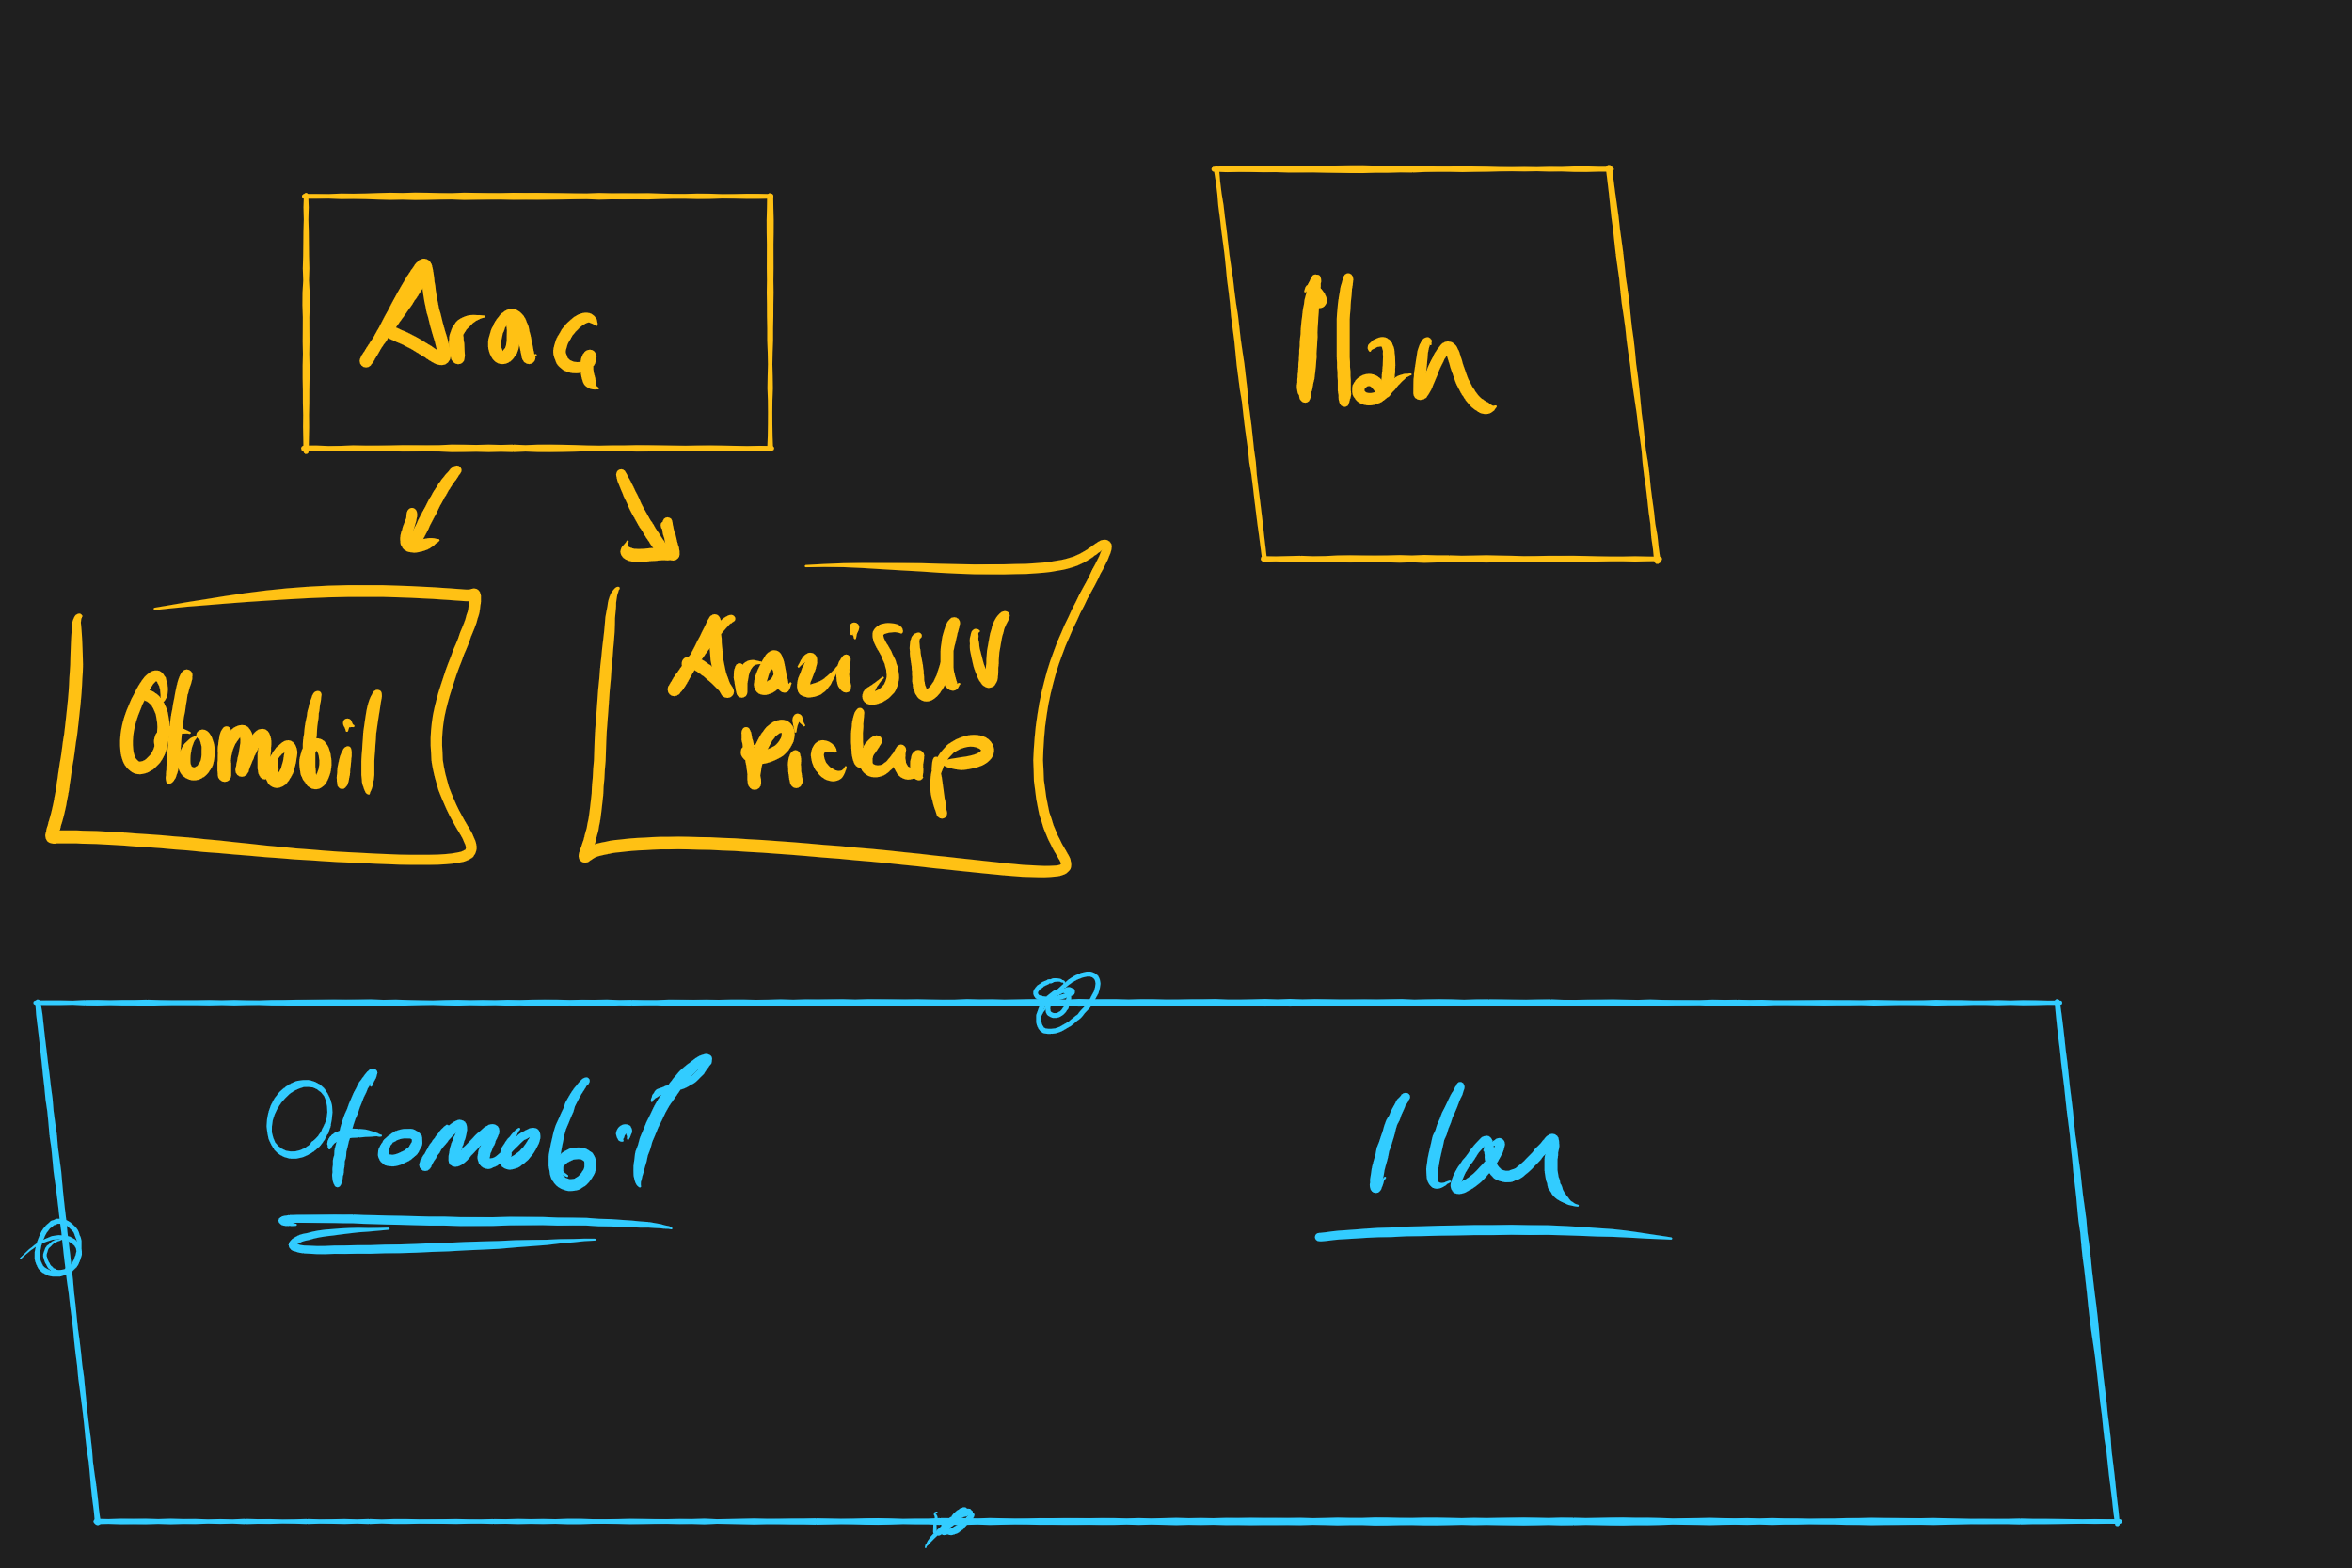 Araç
İlan
Otomobil
Arazi SUV
Pickup
Otomobil
Ilan